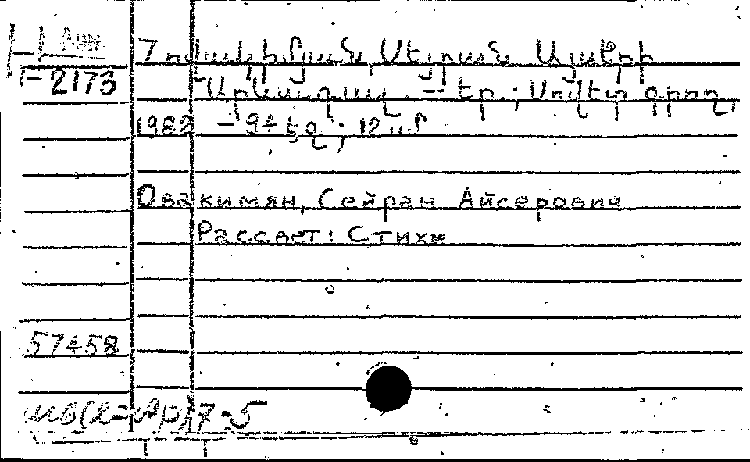 Հովակիմյան, Սեյրան Այսերի
2173
Արևագալ. – Եր.; Սովետ. գրող,
1982 – 94 էջ; 12 սմ
Овакимян, Сейран Айсерович
Рассвет: Стихи
57458
7-5